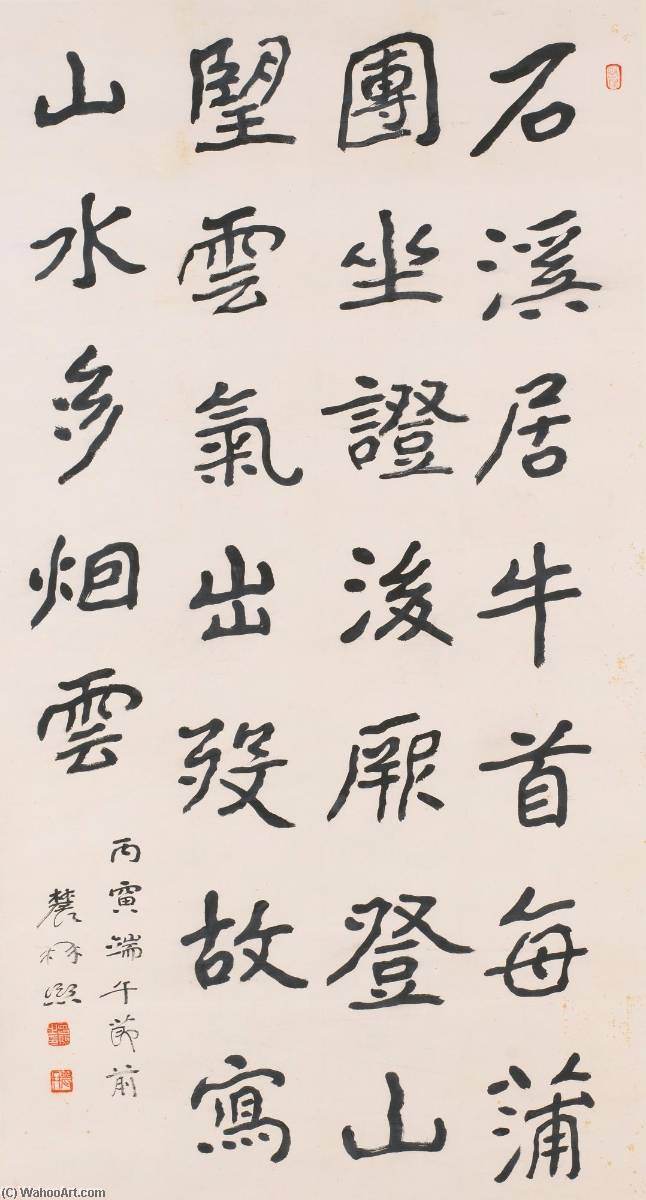 石溪居牛首每蒲
團坐證後厥登山
朢雲氣出歿故寫
山水多烟雲
丙寅端午節前
農髯熙
(C) WahooArt.com